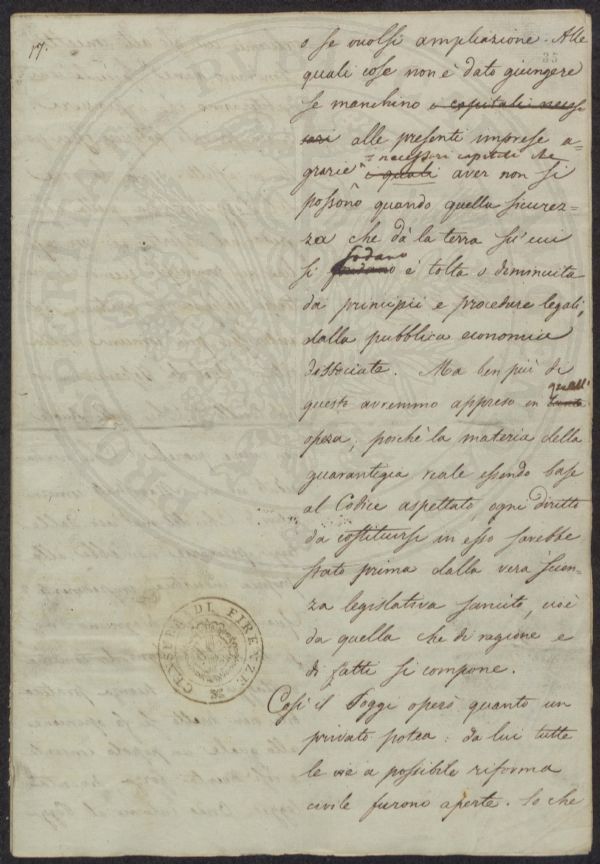 17.
35
o se vuolsi ampliazione. Alle
quali cose non è dato giungere
se manchino i capitali neces-
sari alle presenti imprese a-
necessari capitali che
grarie i quali aver non si
possono quando quella sicurez-
za che dà la terra su cui
fondano
si è tolta o diminuita
da principii e procedure legali,
dalla pubblica economia
dissociate. Ma ben più di
quell'
questo avremmo appreso in
opera; poichè la materia della
guarantigia reale essendo base
al Codice aspettato, ogni diritto
da costituirsi in esso sarebbe
stato prima dalla vera scien-
za legislativa sancito, cioè
da quella che di ragione e
di fatti si compone.
Così il Poggi operò quanto un
privato potea: da lui tutte
le vie a possibile riforma
civile furono aperte. Lo che
CENSURA DI FIRENZE